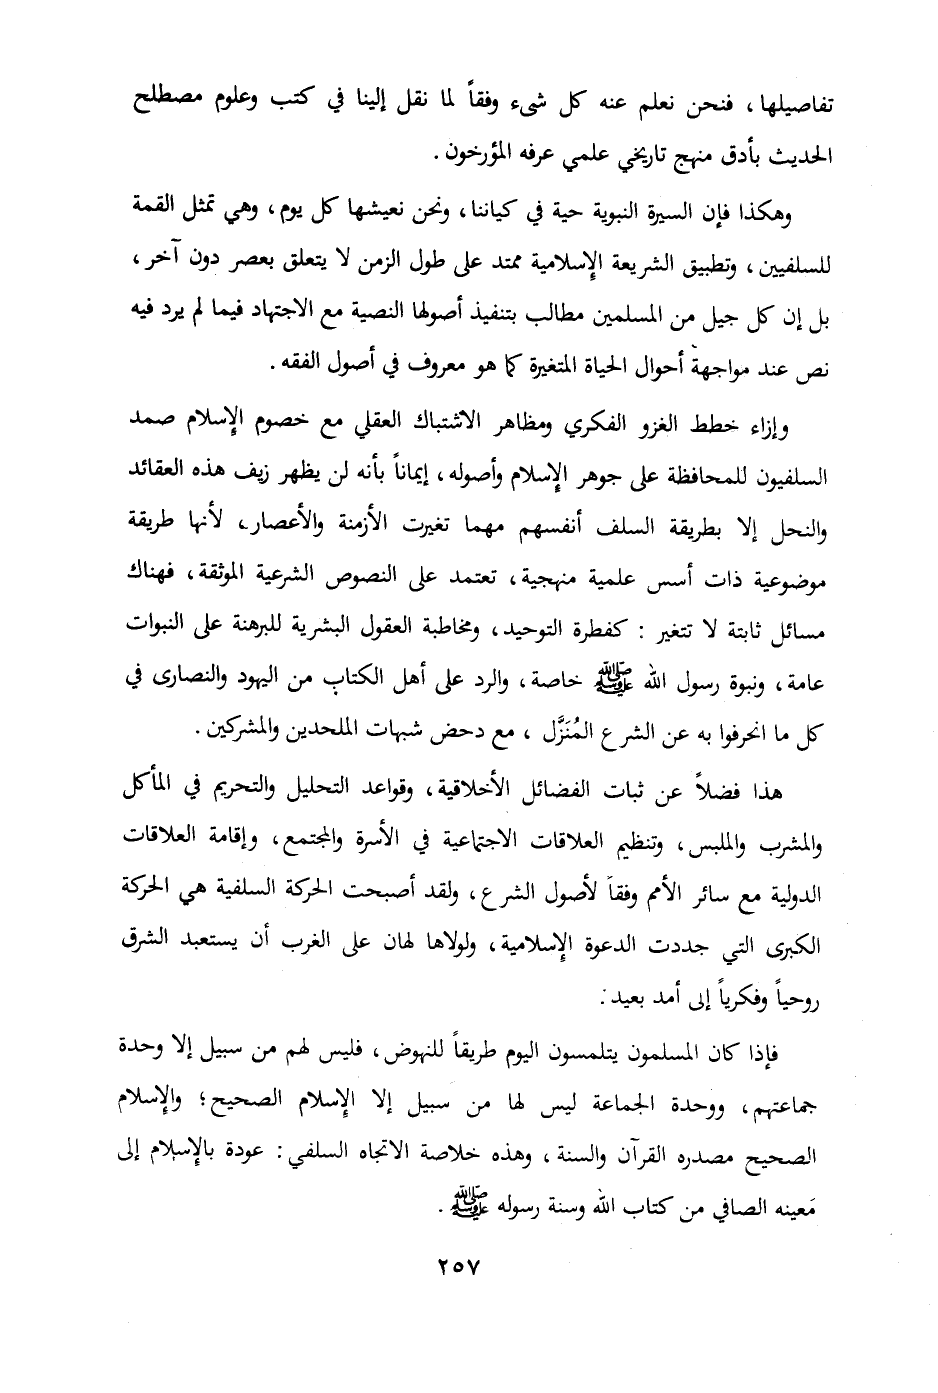 تفاصيلها ، فنحن نعلم عنه كل شيء وفقاً لما نقل إلينا في كتب وعلوم مصطلح
الحديث بأدق منهج تاريخي علمي عرفه المؤرخون .
وهكذا فإن السيرة النبوية حية في كياننا ، ونحن نعيشها كل يوم ، وهي تمثل القمة
للسلفيين ، وتطبيق الشريعة الإسلامية ممتد على طول الزمن لا يتعلق بعصر دون آخر ،
بل إن كل جيل من المسلمين مطالب بتنفيذ أصولها النصية مع الاجتهاد فيما لم يرد فيه
نص عند مواجهة أحوال الحياة المتغيرة كما هو معروف في أصول الفقه .
وإزاء خطط الغزو الفكري ومظاهر الاشتباك العقلي مع خصوم الإسلام صمد
السلفيون للمحافظة على جوهر الإسلام وأصوله ، إيماناً بأنه لن يظهر زيف هذه العقائد
والنحل إلا بطريقة السلف أنفسهم مهما تغيرت الأزمنة والأعصار ، لأنها طريقة
موضوعية ذات أسس علمية منهجية ، تعتمد على النصوص الشرعية الموثقة ، فهناك
مسائل ثابتة لا تتغير : كفطرة التوحيد ، ومخاطبة العقول البشرية للبرهنة على النبوات
عامة ، ونبوة رسول الله ﷺ خاصة ، والرد على أهل الكتاب من اليهود والنصارى في
كل ما انحرفوا به عن الشرع المُنَزَّل ، مع دحض شبهات الملحدين والمشركين .
هذا فضلاً عن ثبات الفضائل الأخلاقية ، وقواعد التحليل والتحريم في المأكل
والمشرب والملبس ، وتنظيم العلاقات الاجتماعية في الأسرة والمجتمع ، وإقامة العلاقات
الدولية مع سائر الأمم وفقاً لأصول الشرع ، ولقد أصبحت الحركة السلفية هي الحركة
الكبرى التي جددت الدعوة الإسلامية ، ولولاها لهان على الغرب أن يستعبد الشرق
روحياً وفكرياً إلى أمد بعيد :
فإذا كان المسلمون يتلمسون اليوم طريقاً للنهوض ، فليس لهم من سبيل إلا وحدة
جماعتهم ، ووحدة الجماعة ليس لها من سبيل إلا الإسلام الصحيح ؛ والإسلام
الصحيح مصدره القرآن والسنة ، وهذه خلاصة الاتجاه السلفي : عودة بالإسلام إلى
مَعينه الصافي من كتاب الله وسنة رسوله ﷺ .
٢٥٧